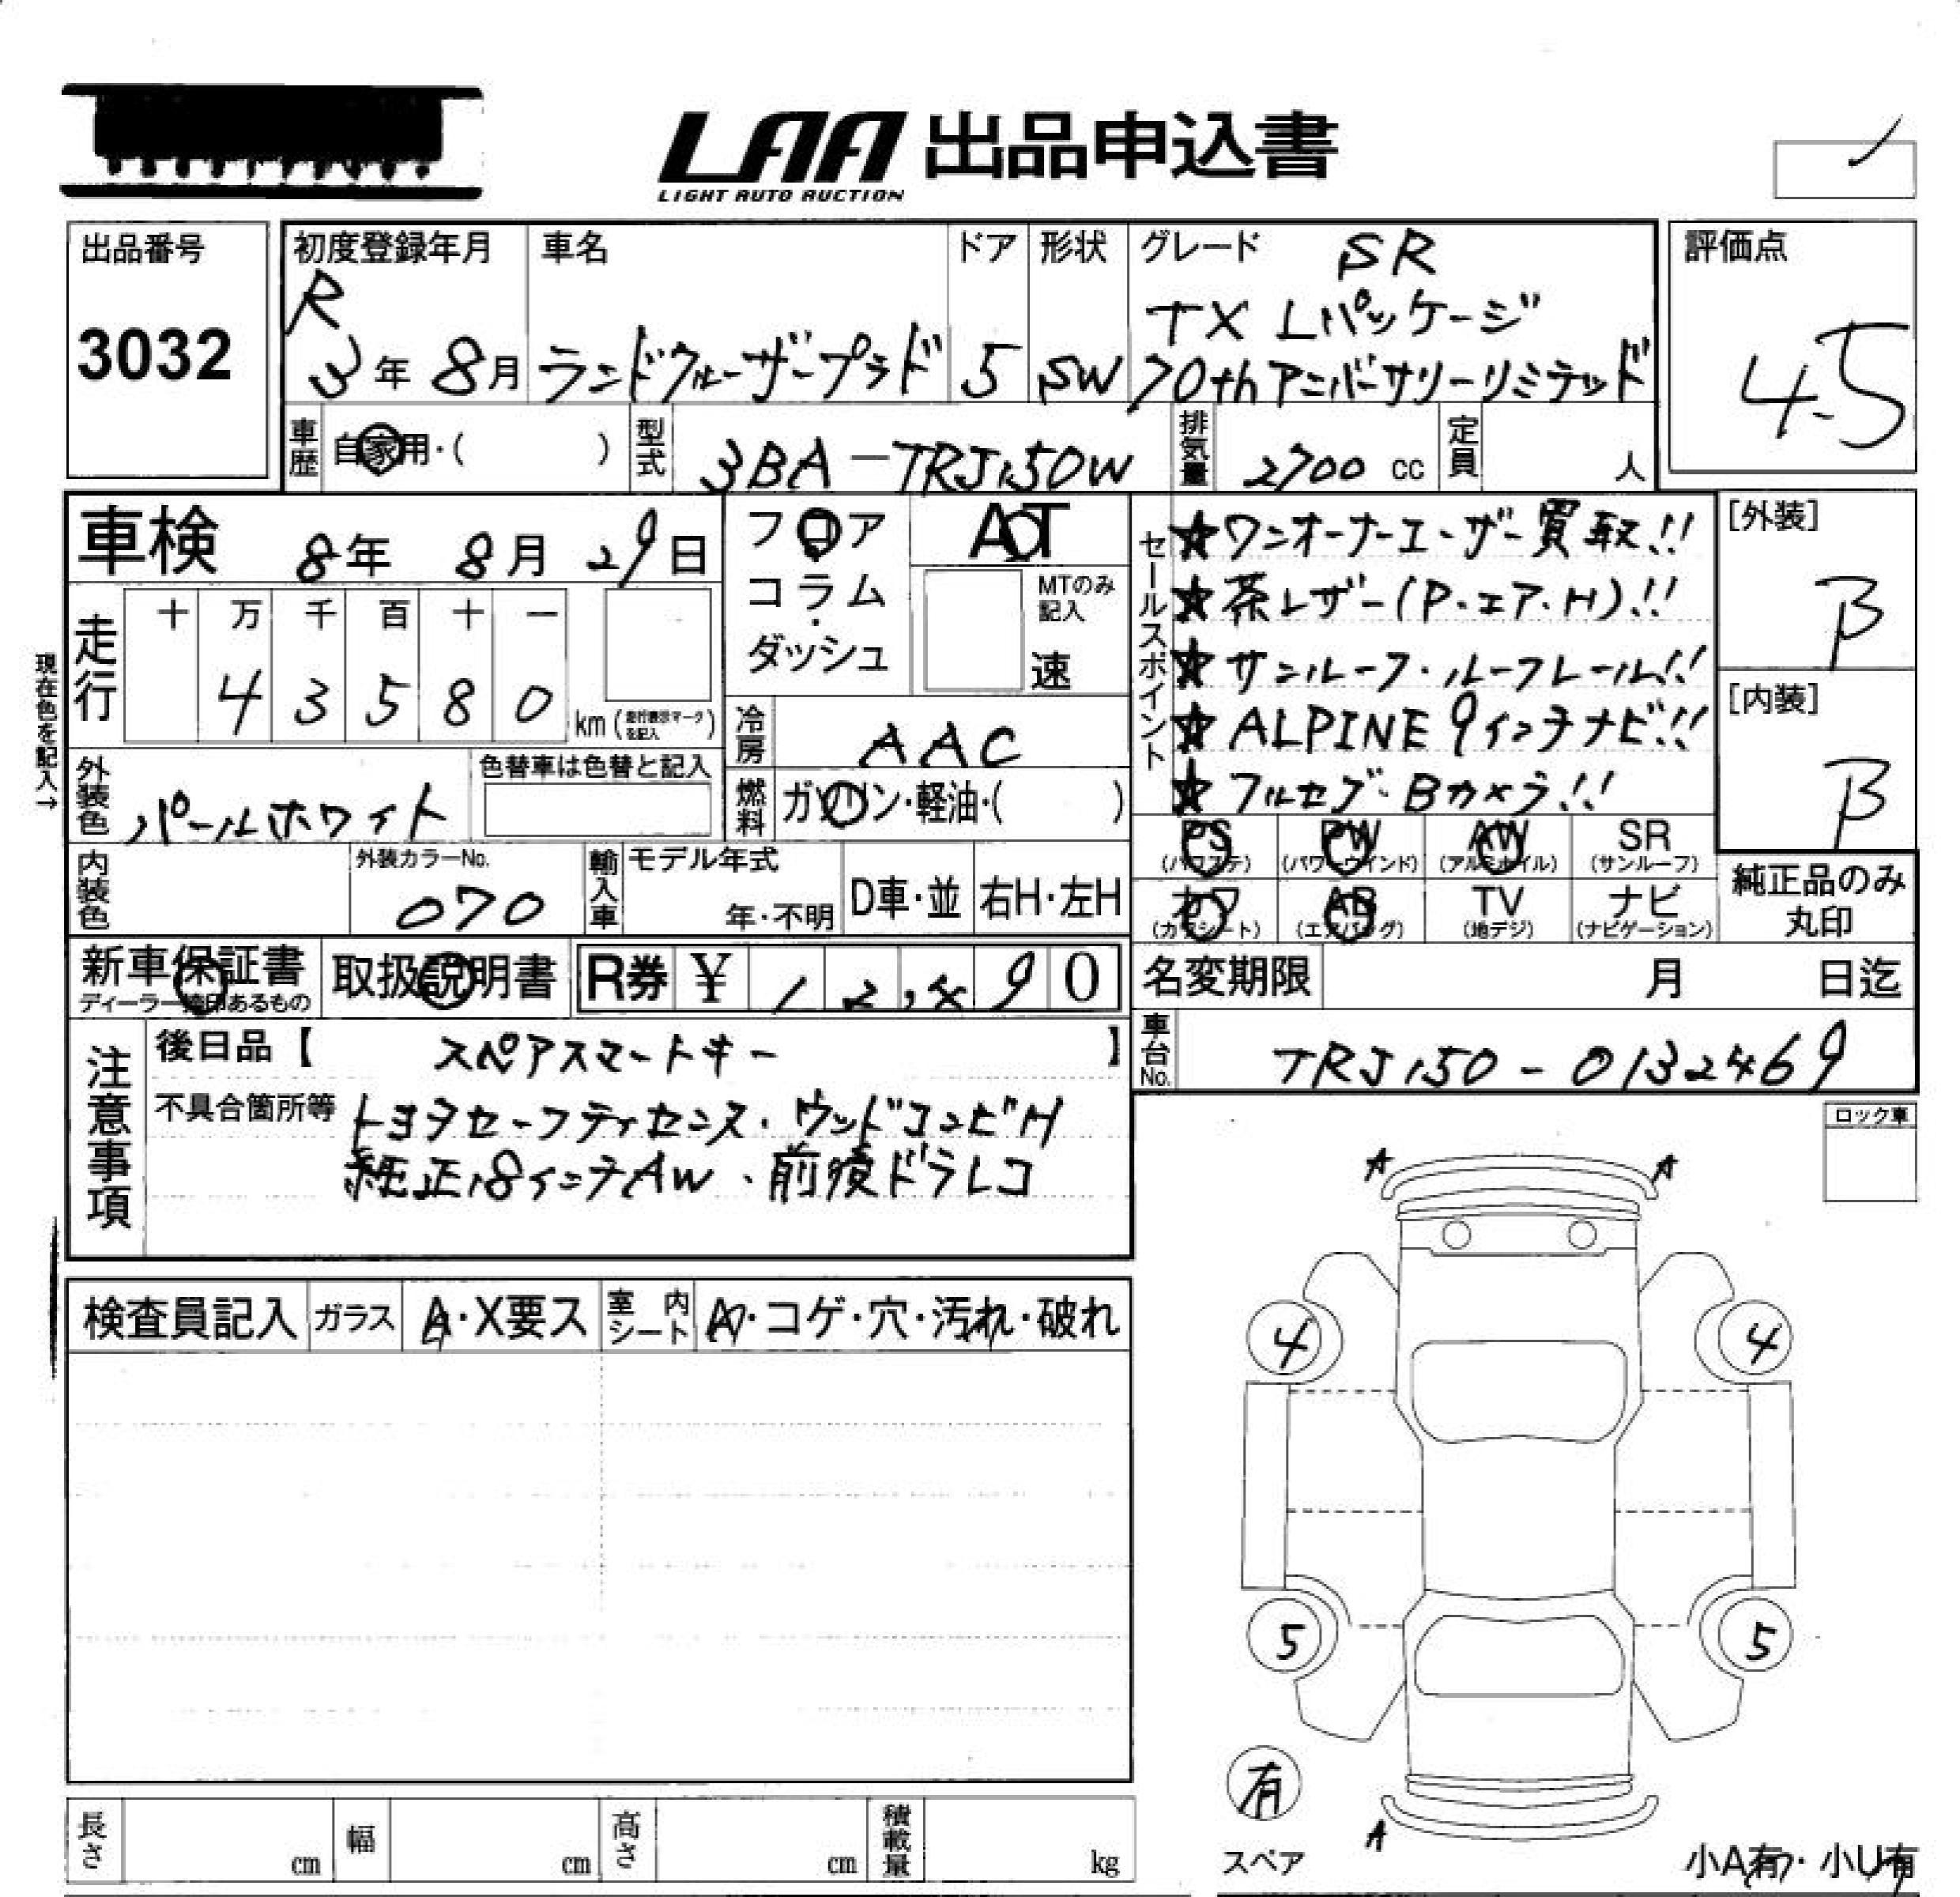 LAA 出品申込書
LIGHT AUTO AUCTION
出品番号
3032
初度登録年月
R
3年 8月
車名
ランドクルーザープラド
ドア
5
形状
SW
グレード SR
TX Lパッケージ
70thアニバーサリーリミテッド
評価点
4.5
車歴 自家用・( )
型式 3BA-TRJ150W
排気量 2700 cc
定員 人
車検 8年 8月 29日
フロア
コラム・
ダッシュ
AT
MTのみ
記入
速
セールスポイント
★ワンオーナーユーザー買取!!
★茶レザー(P.エア.H)!!
★サンルーフ・ルーフレール!!
★ALPINE 9インチナビ!!
★フルセグ・Bカメラ!!
[外装]
B
[内装]
B
現在色を記入→
走行
十 万 千 百 十 一
4 3 5 8 0
km(走行表示マークを記入)
冷房 AAC
燃料 ガソリン・軽油・( )
外装色 パールホワイト
色替車は色替と記入
内装色
外装カラーNo.
070
輸入車
モデル年式
年・不明
D車・並
右H・左H
PS
(パワステ)
PW
(パワーウインド)
AW
(アルミホイル)
SR
(サンルーフ)
カワ
(カワシート)
AB
(エアバッグ)
TV
(地デジ)
ナビ
(ナビゲーション)
純正品のみ
丸印
新車保証書
ディーラー捺印あるもの
取扱説明書
R券 ¥ 12,490
名変期限 月 日迄
車台No. TRJ150-0132469
注意事項
後日品【 スペアスマートキー 】
不具合箇所等 トヨタセーフティセンス・ウッドコンビH
純正18インチAW、前後ドラレコ
ロック車
A A
検査員記入
ガラス A・X要ス
室内シート A・コゲ・穴・汚れ・破れ
4 4
5 5
有
スペア
A
小A有・小U有
長さ cm
幅 cm
高さ cm
積載量 kg